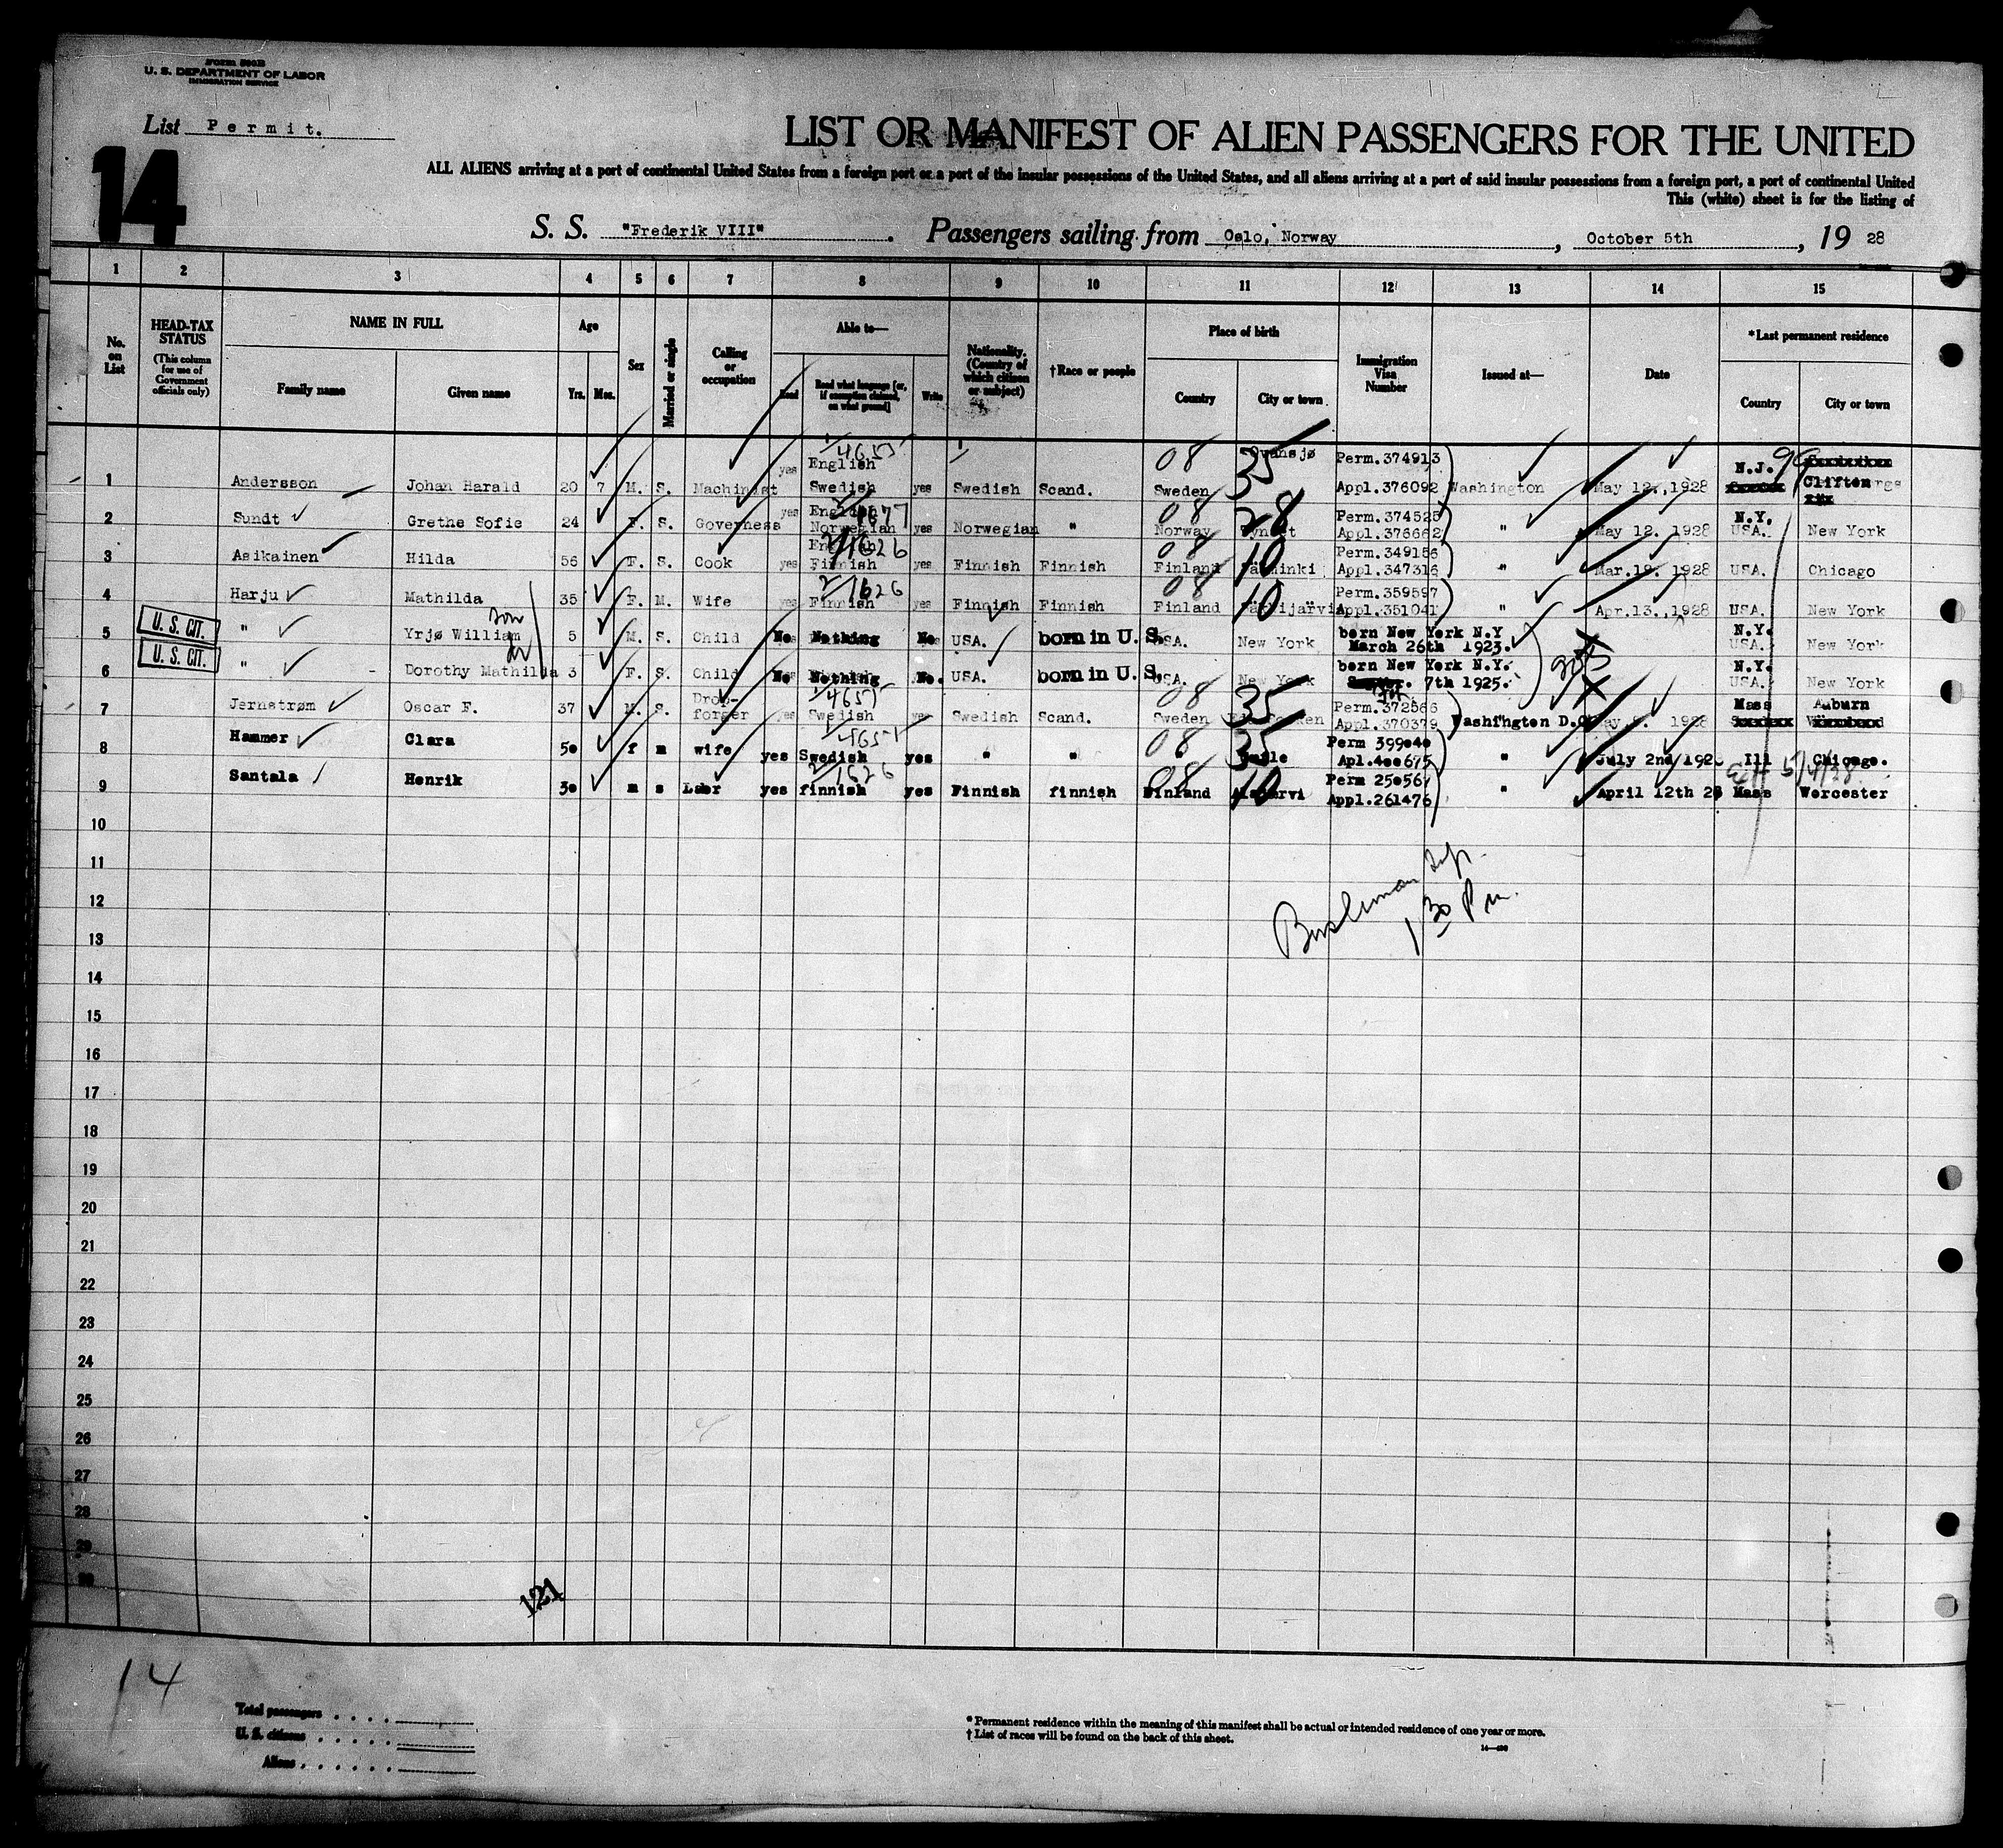 FORM 500B
U. S. DEPARTMENT OF LABOR
IMMIGRATION SERVICE
List Permit.
14
LIST OR MANIFEST OF ALIEN PASSENGERS FOR THE UNITED
ALL ALIENS arriving at a port of continental United States from a foreign port or a port of the insular possessions of the United States, and all aliens arriving at a port of said insular possessions from a foreign port, a port of continental United
This (white) sheet is for the listing of
S. S. "Frederik VIII". Passengers sailing from Oslo, Norway, October 5th, 19 28
1 2 3 4 5 6 7 8 9 10 11 12 13 14 15
No. on List
HEAD-TAX STATUS
(This column for use of Government officials only)
NAME IN FULL
Family name Given name
Age
Yrs. Mos.
Sex
Married or single
Calling or occupation
Able to—
Read Read what language [or, if exemption claimed, on what ground] Write
Nationality. (Country of which citizen or subject)
†Race or people
Place of birth
Country City or town
Immigration Visa Number
Issued at—
Date
*Last permanent residence
Country City or town
1 Andersson Johan Harald 20 7 M. S. Machinist yes English Swedish yes Swedish Scand. Sweden 08 35 Perm.374913 Appl.376092 Washington May 12.,1928 N.J. Clifton
2 Sundt Grethe Sofie 24 F. S. Governess yes English Norwegian yes Norwegian " Norway 08 28 Perm.374525 Appl.376662 " May 12. 1928 N.Y. USA. New York
3 Asikainen Hilda 56 F. S. Cook yes English Finnish yes Finnish Finnish Finland 08 10 Perm.349156 Appl.347316 " Mar.19. 1928 USA. Chicago
4 Harju Mathilda 35 F. M. Wife yes Finnish yes Finnish Finnish Finland 08 10 Perm.359597 Appl.351041 " Apr.13.,1928 USA. New York
U. S. CIT. 5 " Yrjø William son 5 M. S. Child No Nothing No USA. born in U. S. USA. New York born New York N.Y March 26th 1923. N.Y. USA. New York
U. S. CIT. 6 " Dorothy Mathilda 3 F. S. Child No Nothing No. USA. born in U. S. USA. New York born New York N.Y. 7th 1925. N.Y. USA. New York
7 Jernstrøm Oscar F. 37 M. S. Drop-forger yes Swedish yes Swedish Scand. Sweden 08 35 Perm.372566 Appl.370379 Washington D.C. May 9. 1928 Mass Auburn
8 Hammer Clara 50 f m wife yes Swedish yes " " " 08 35 Perm 399040 Apl.400675 " July 2nd 192 Ill Chicago.
9 Santala Henrik 30 m s Labr yes finnish yes Finnish finnish Finland 08 10 Perm 250567 Appl.261476 " April 12th 28 Mass Worcester
10
11
12
13
14
15
16
17
18
19
20
21
22
23
24
25
26
27
28
29
30
1 30 Pm.
121
14
Total passengers
U. S. citizens
Aliens
* Permanent residence within the meaning of this manifest shall be actual or intended residence of one year or more.
† List of races will be found on the back of this sheet.